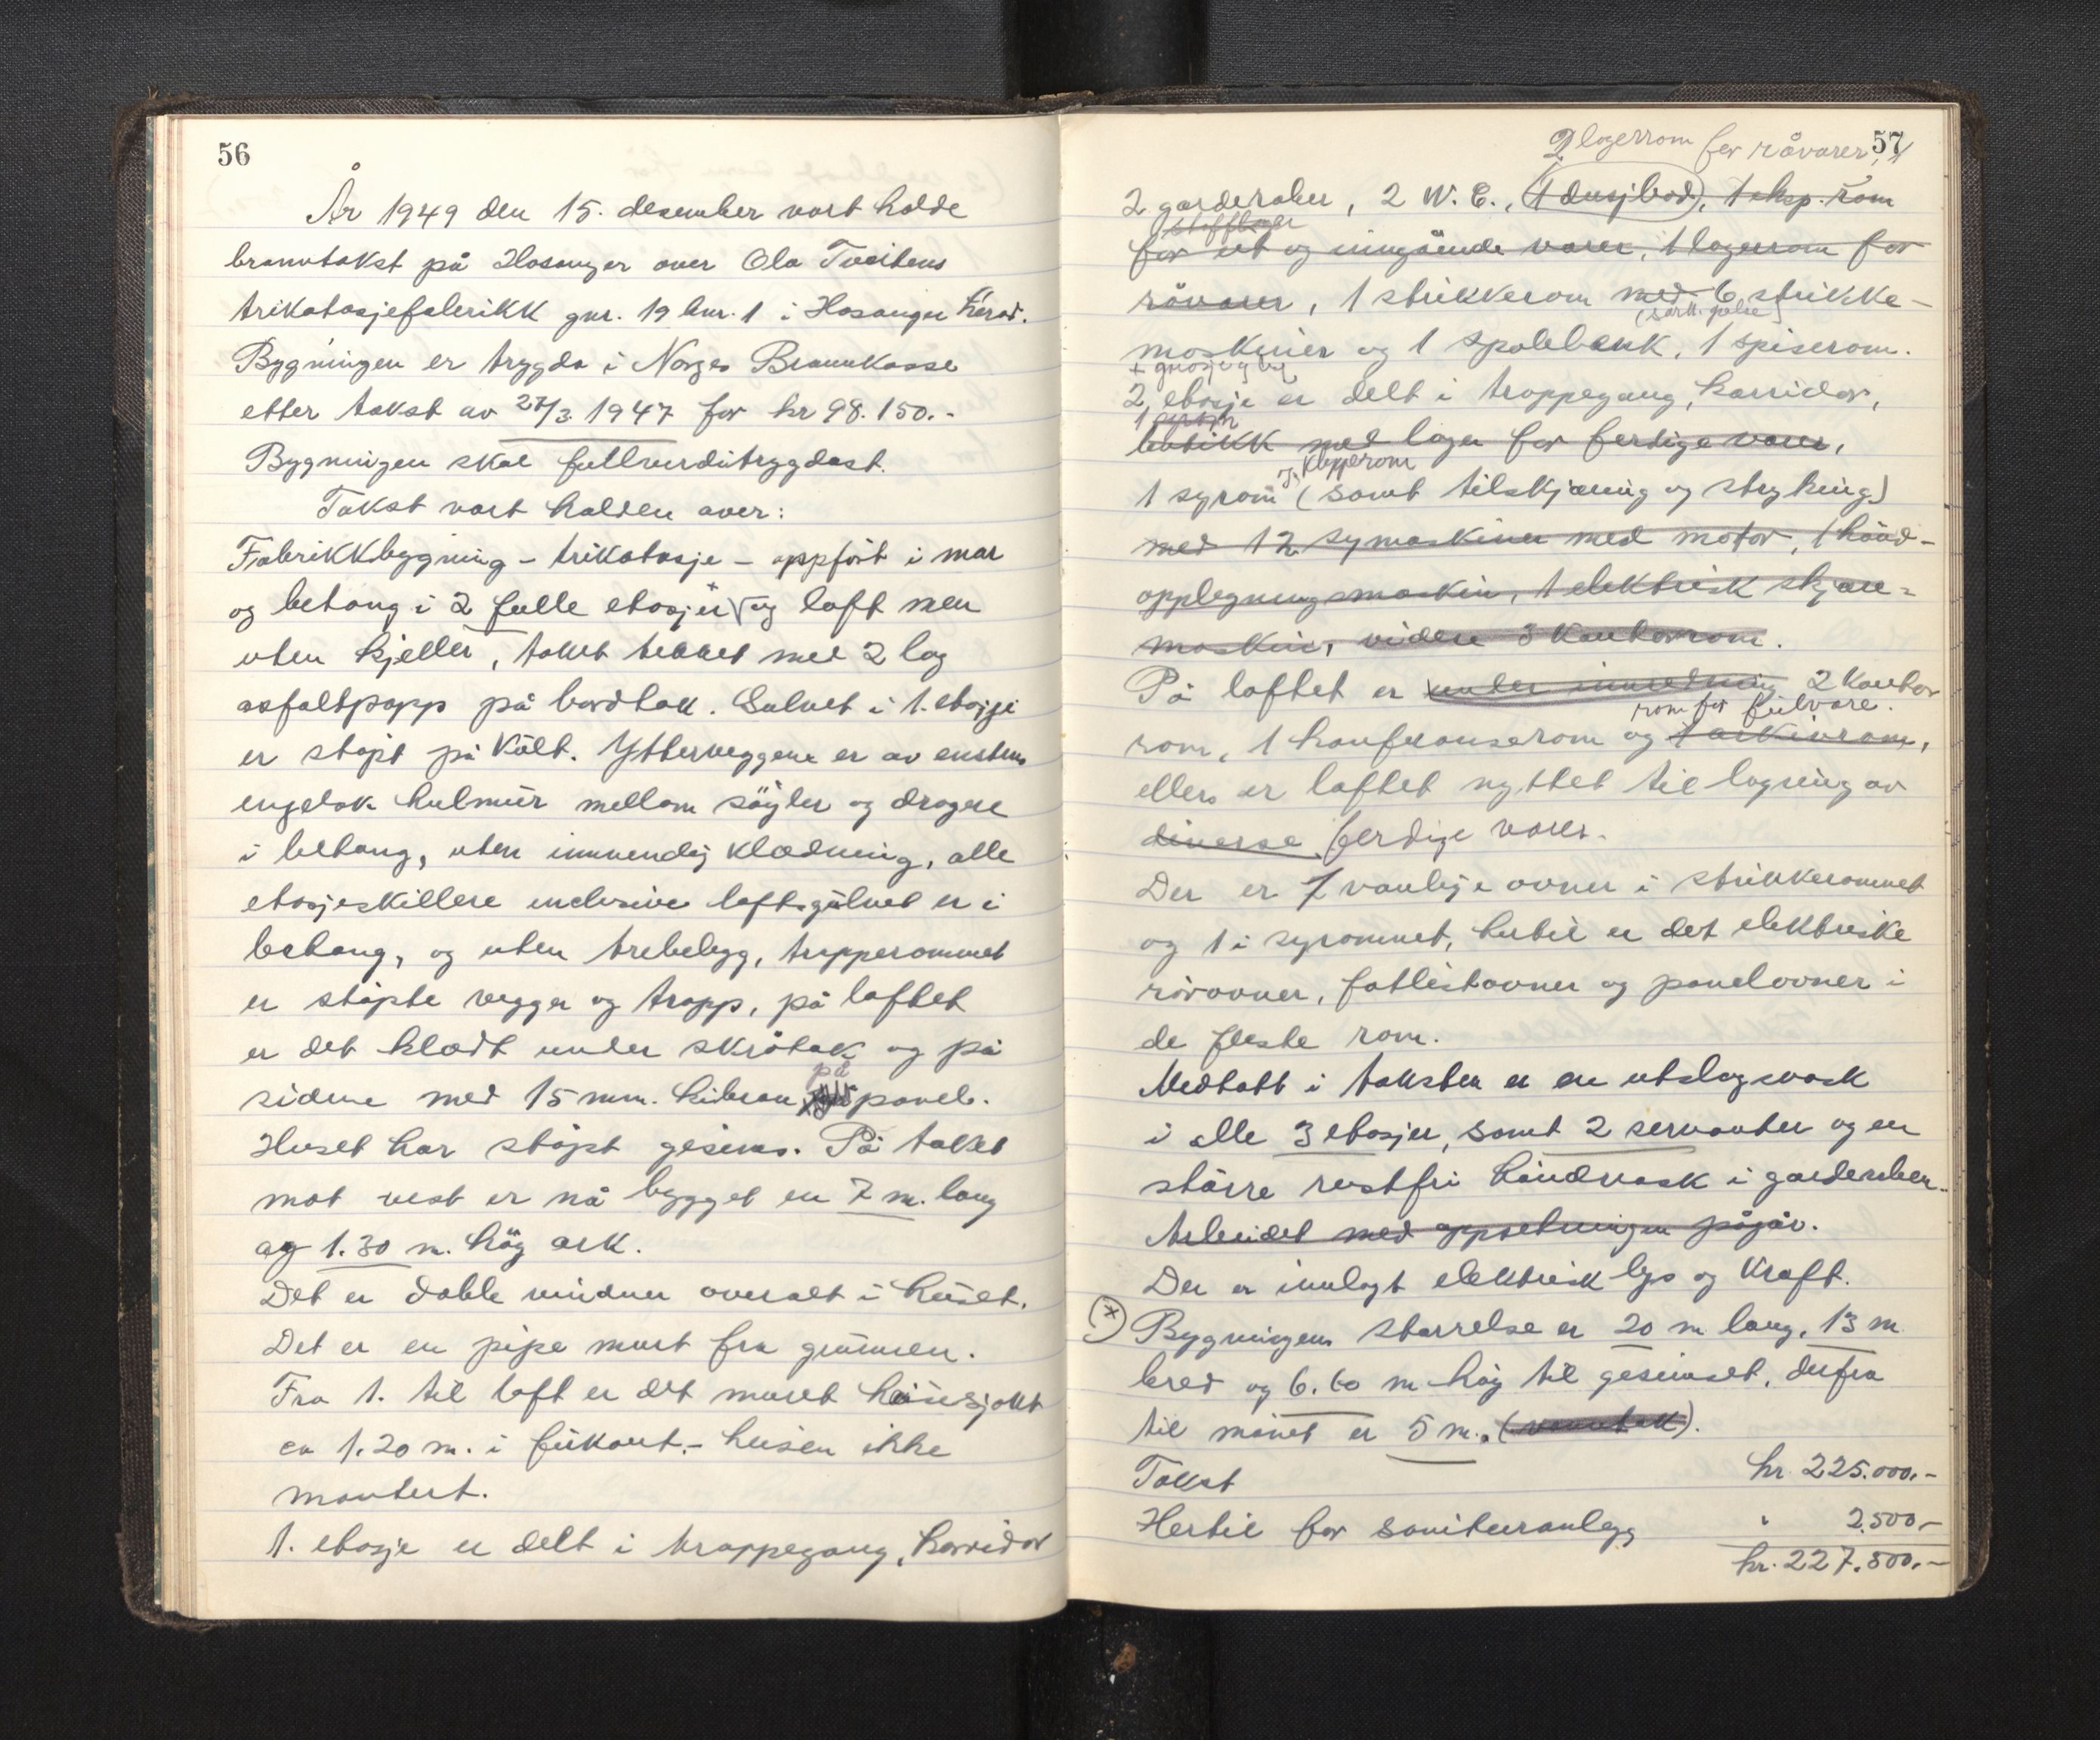 56
År 1949 den 15. desember vart halde
branntakst på Hosanger over Ola Tveitens
trikotasjefabrikk gnr. 19 bnr. 1 i Hosanger herad.
Bygningen er trygda i Norges Brannkasse
etter takst av 27/3 1947 for kr 98.150.-
Bygningen skal fullverditrygdast.
Takst vart halden over:
Fabrikkbygning - trikotasje - oppført i mur
og betong i 2 fulle etasjer og loft men
uten kjeller, taket tekket med 2 lag
asfaltpapp på bordtak. Golvet i 1. etasje
er støpt på kålt. Ytterveggene er av enstens
engelsk hulmur mellom søyler og dragere
i betong, uten innvendig klædning, alle
etasjeskillere inclusive loftsgolvet er i
betong, og uten trebelegg, trapperommet
er støpte vegger og trapp, på loftet
er det klædt under skråtak og på
sidene med 15 mm. huberan på panel.
Huset har støpt gesims. På taket
mot vest er nå bygget en 7 m. lang
og 1.30 m. høg ark.
Det er doble vinduer overalt i huset.
Det er en pipe murt fra grunnen.
Fra 1. til loft er det muret heisesjakt
ca 1.20 m. i firkant.- heisen ikke
montert.
1. etasje er delt i trappegang, korridor
57
2 lagerrom for råvarer,
2 garderober, 2 W.C., 1 dusjbad, 1 eksp. rom
stofflager
for ut og inngående varer, 1 lagerrom for
råvarer, 1 strikkerom med 6 strikke-
moskiner og 1 spolebenk, 1 spiserom.
2. etasje er delt i trappegang, korridor,
1 syrom
butikk med lager for ferdige varer,
og klypperom
1 syrom (samt tilskjæring og stryking)
med 12 symaskiner med motor, 1 hånd-
opplegningsmaskin, 1 elektrisk skjære-
maskin, videre 3 kontorrom.
På loftet er under innredning 2 kontor
rom for filvare.
rom, 1 konferanserom og 1 arkivrom,
ellers er loftet nyttet til lagring av
diverse ferdige varer.
Der er 7 vanlige ovner i strikkerommet
og 1 i syrommet, hertil er det elektriske
rørovner, fotlistovner og panelovner i
de fleste rom.
Medtatt i taksten er en utslagsvask
i alle 3 etasjer, samt 2 servanter og en
større rustfri håndvask i garderober.
Arbeidet med oppsetningen pågår.
Der er innlagt elektrisk lys og kraft.
x Bygningens størrelse er 20 m lang, 13 m
bred og 6.60 m høg til gesimset, derfra
til mønet er 5 m. (vanntak).
Takst kr 225.000.-
Hertil for saniteranlegg " 2.500,-
kr. 227.500.-